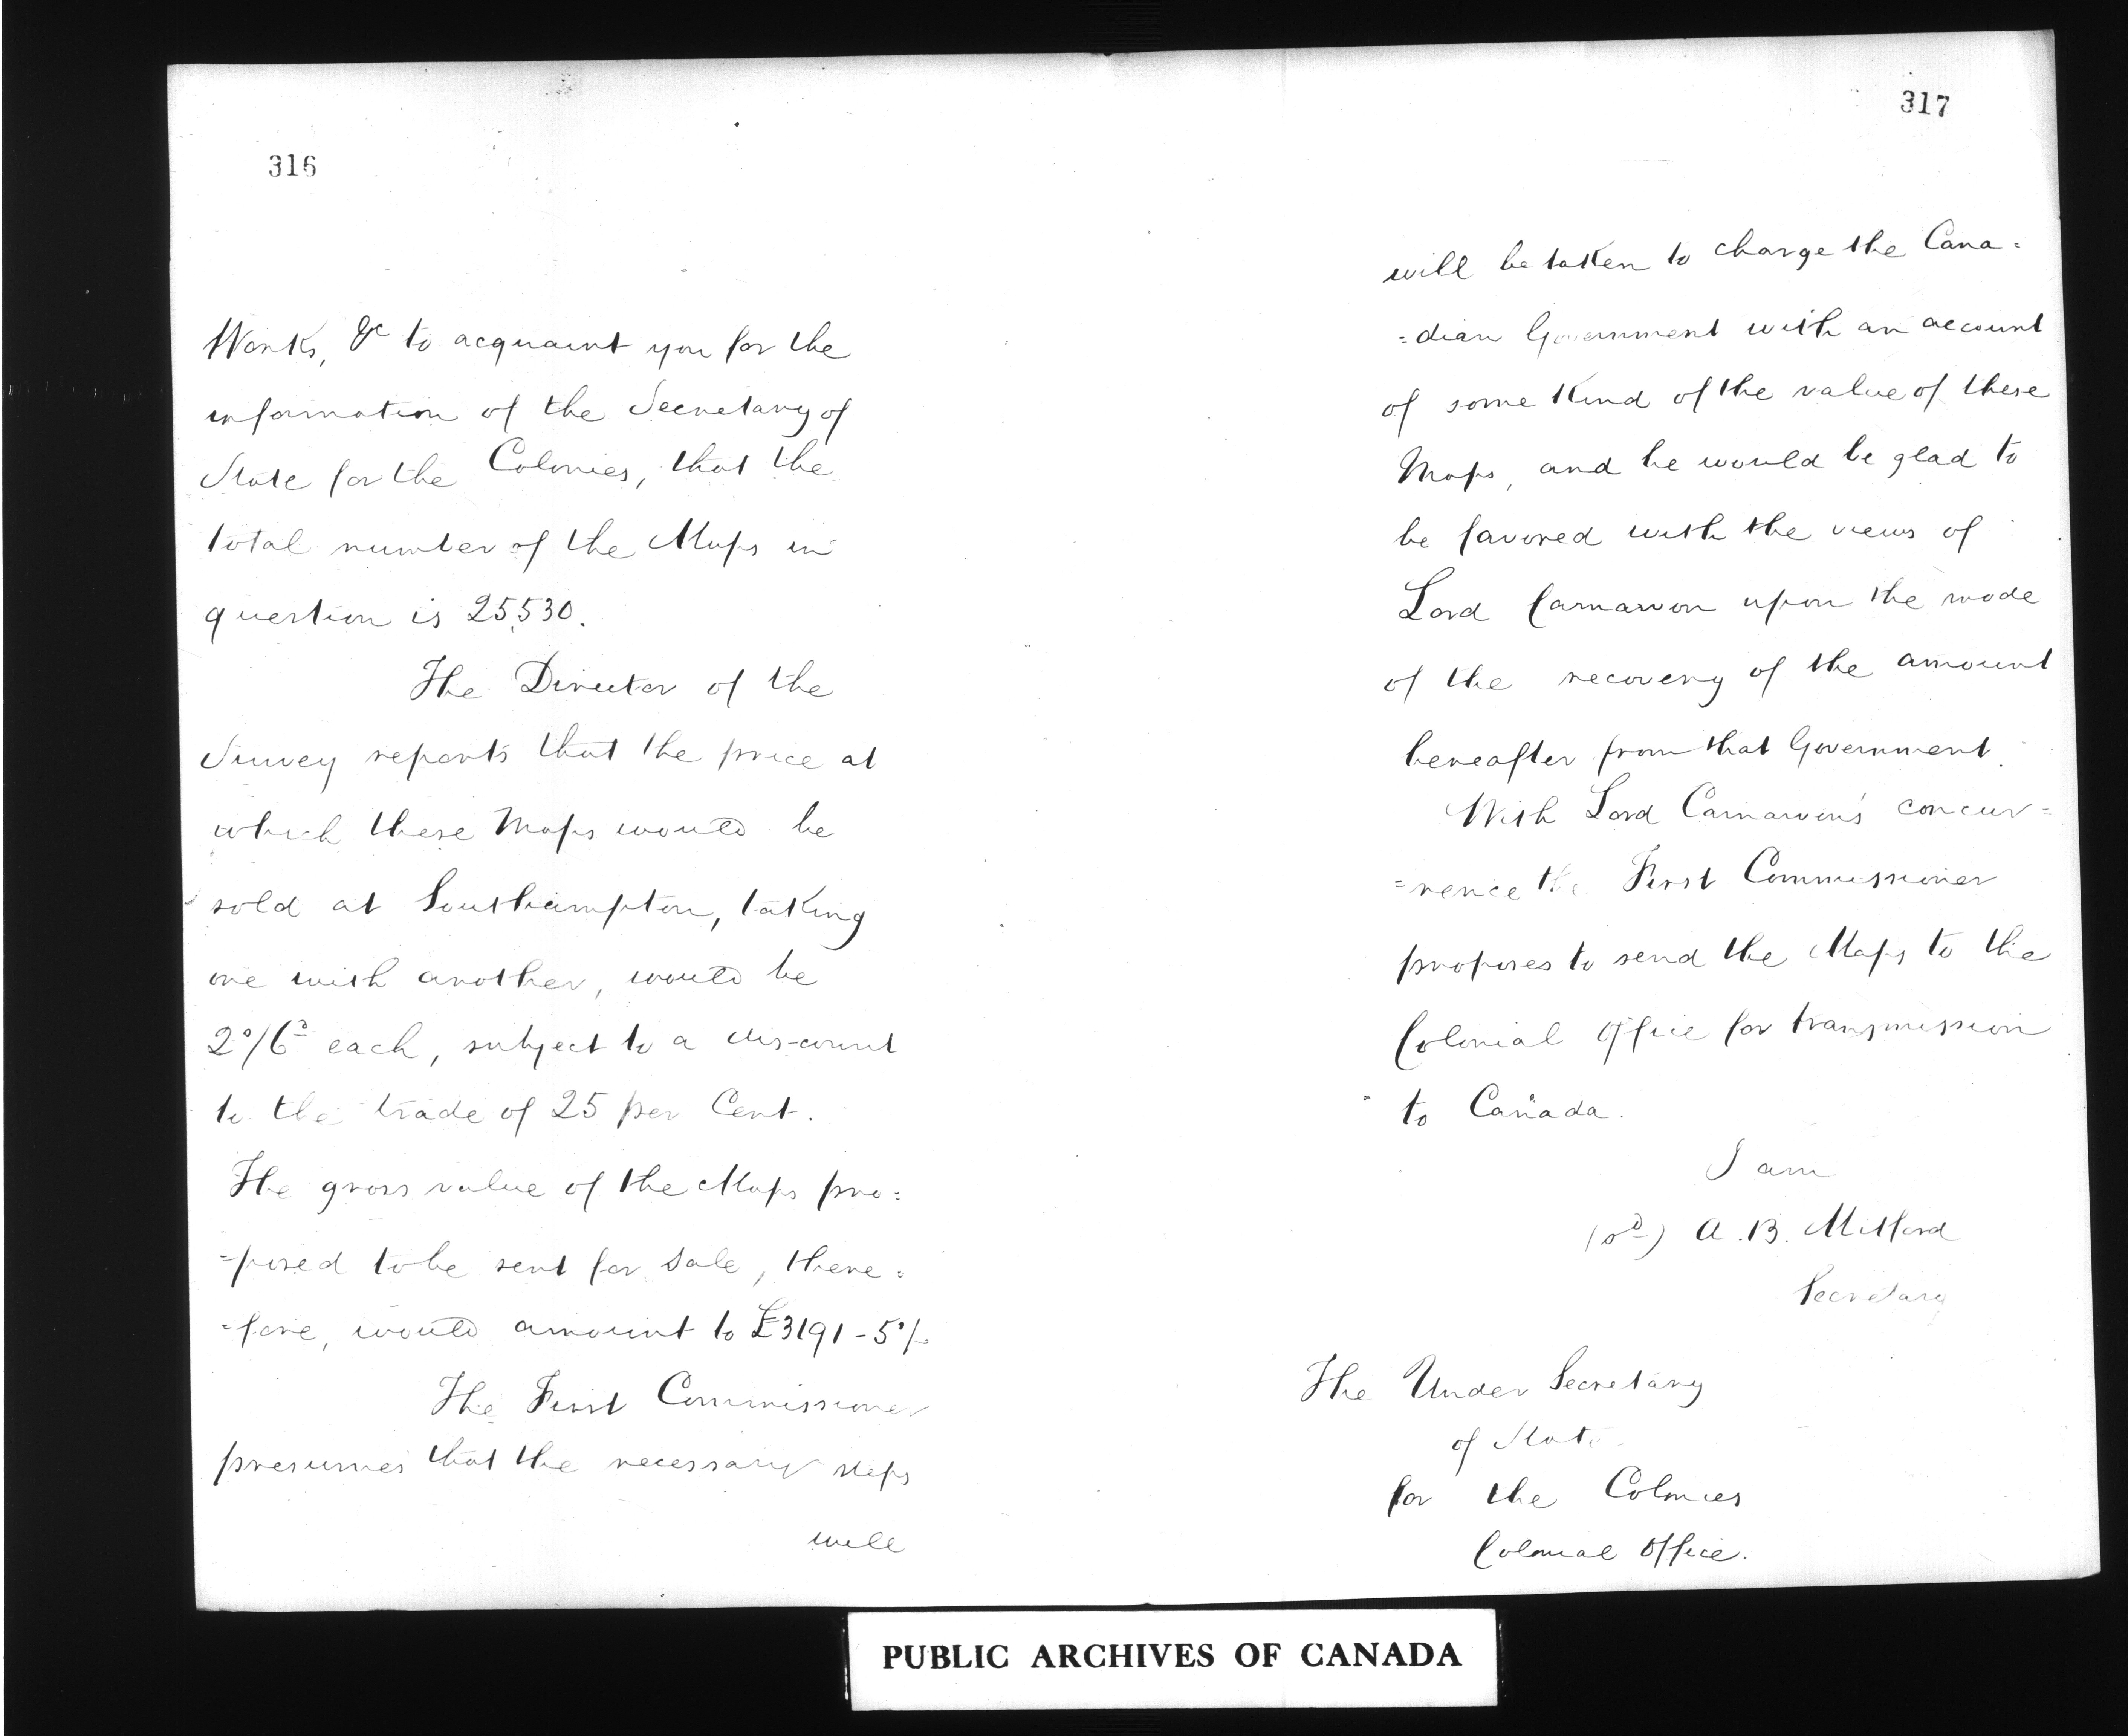 316
Works, &c to acquaint you for the
information of the Secretary of
State for the Colonies, that the
total number of the Maps in
question is 25,530.
The Director of the
Survey reports that the price at
which these Maps would be
sold at Southampton, taking
one with another, would be
2s/6d each, subject to a discount
to the trade of 25 per Cent.
The gross value of the Maps pro=
=posed to be sent for sale, there=
=fore, would amount to £3191-5s/-
The First Commissioner
presumes that the necessary steps
will
317
will be taken to charge the Cana=
=dian Government with an account
of some Kind of the value of these
Maps, and he would be glad to
be favored with the views of
Lord Carnarvon upon the mode
of the recovery of the amount
hereafter from that Government.
With Lord Carnarvon's concur=
=rence the First Commissioner
proposes to send the Maps to the
Colonial Office for transmission
to Canada.
I am
(sd) A.B. Mitford
Secretary
The Under Secretary
of State
for the Colonies
Colonial Office.
PUBLIC ARCHIVES OF CANADA